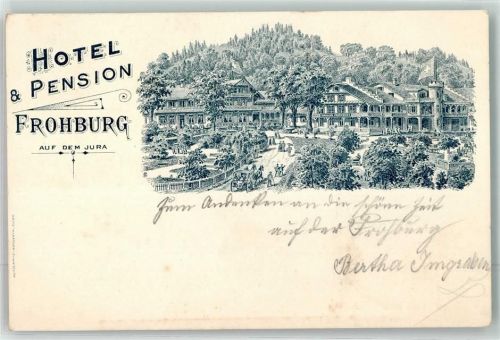 HOTEL
& PENSION
FROHBURG
AUF DEM JURA
Zum Andenken an die schöne Zeit
auf der Frohburg
Bertha Imgraben